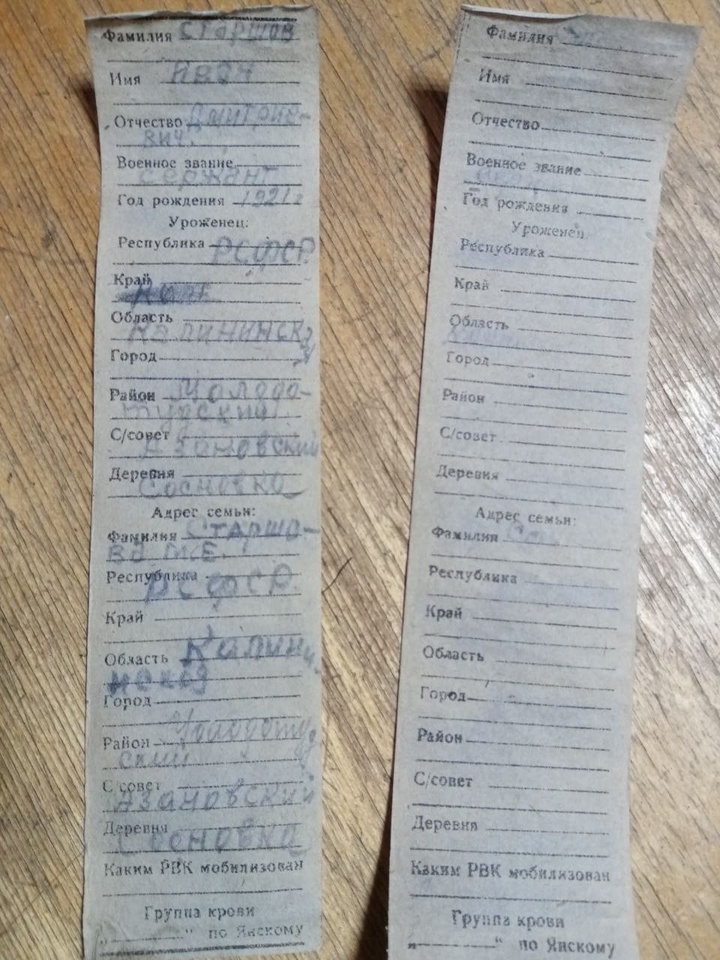 Фамилия Старшов
Имя Иван
Отчество Дмитрие-
вич.
Военное звание
сержант
Год рождения 1921 г
Уроженец:
Республика РСФСР
Край
Область
Калининска
Город
Район Молодо-
тудский
С/совет
Азановский
Деревня
Сосновка
Адрес семьи:
Фамилия Старшо-
ва
Республика
РСФСР
Край
Область Калини-
нская
Город
Район Молодоту
ский
С/совет
Азановский
Деревня
Сосновка
Каким РВК мобилизован
Группа крови
„ “ по Янскому
Фамилия
Имя
Отчество
Военное звание
Год рождения
Уроженец
Республика
Край
Область
Город
Район
С/совет
Деревня
Адрес семьи:
Фамилия
Республика
Край
Область
Город
Район
С/совет
Деревня
Каким РВК мобилизован
Группа крови
„ “ по Янскому